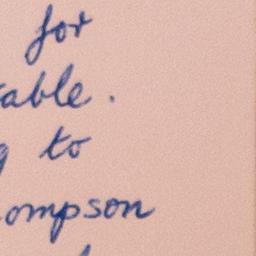 for
able.
g to
ompson